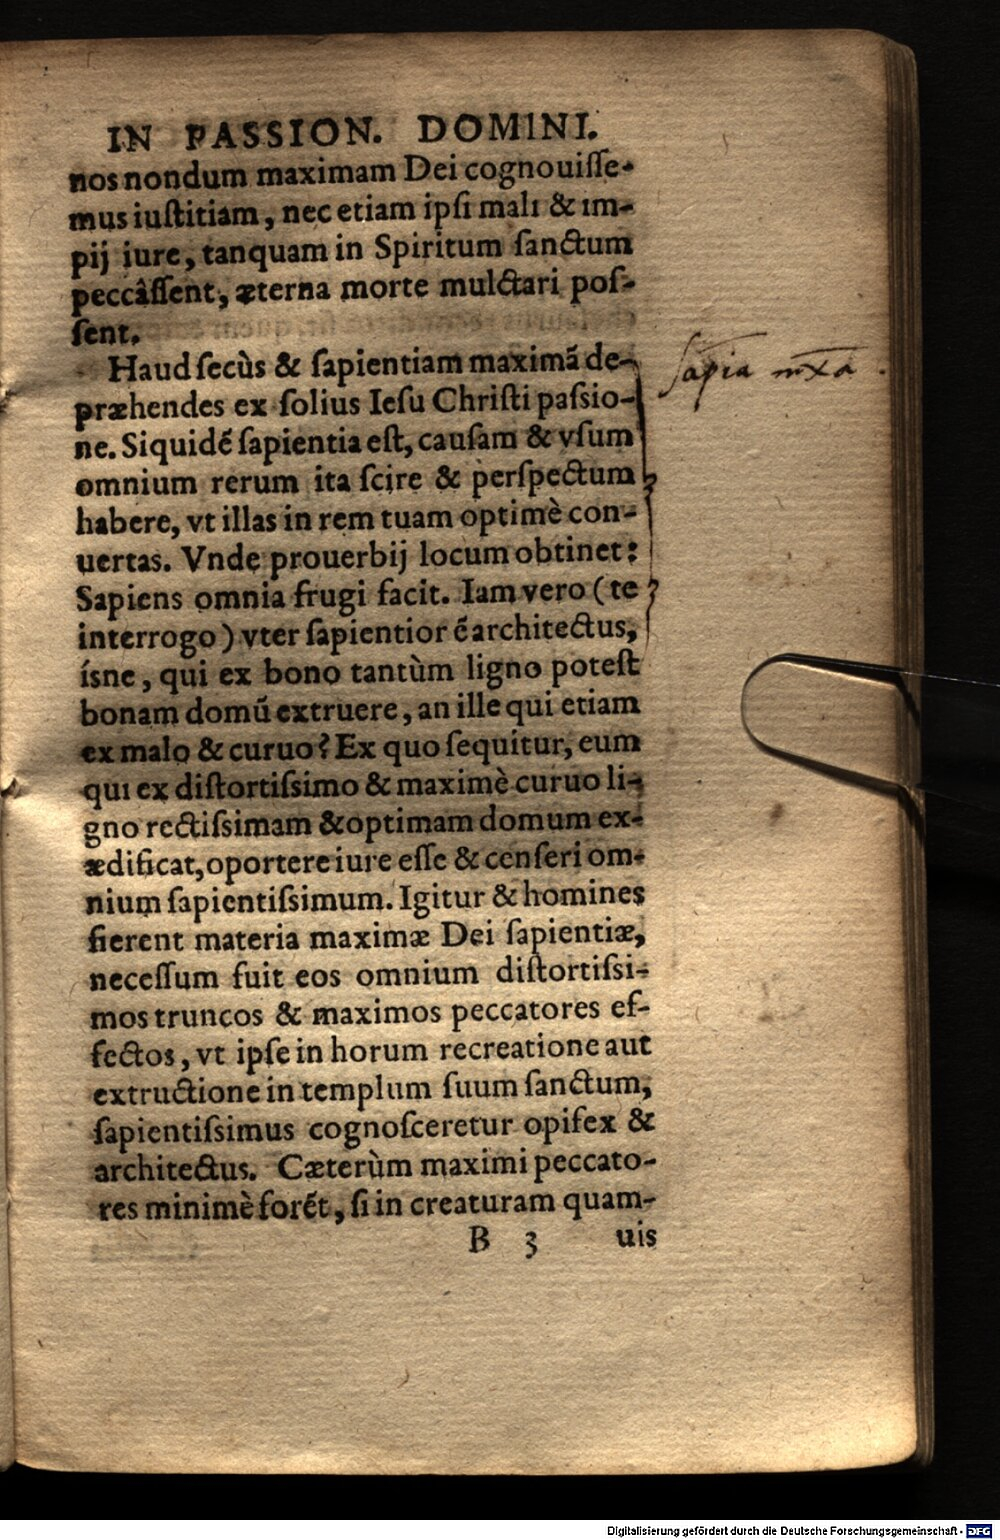 IN PASSION. DOMINI.
nos nondum maximam Dei cognouiſſe-
mus iuſtitiam, nec etiam ipſi mali & im-
pij iure, tanquam in Spiritum ſanctum
peccâſſent, æterna morte mulctari poſ-
ſent.
Haud ſecùs & ſapientiam maximã de-
præhendes ex ſolius Ieſu Chriſti paſsio-
ne. Siquidẽ ſapientia eſt, cauſam & vſum
omnium rerum ita ſcire & perſpectum
habere, vt illas in rem tuam optimè con-
uertas. Vnde prouerbij locum obtinet:
Sapiens omnia frugi facit. Iam vero (te
interrogo) vter ſapientior ẽ architectus,
ísne, qui ex bono tantùm ligno poteſt
bonam domũ extruere, an ille qui etiam
ex malo & curuo? Ex quo ſequitur, eum
qui ex diſtortiſsimo & maximè curuo li-
gno rectiſsimam & optimam domum ex-
ædificat, oportere iure eſſe & cenſeri om-
nium ſapientiſsimum. Igitur & homines
fierent materia maximæ Dei ſapientiæ,
neceſſum fuit eos omnium diſtortiſsi-
mos truncos & maximos peccatores ef-
fectos, vt ipſe in horum recreatione aut
extructione in templum ſuum ſanctum,
ſapientiſsimus cognoſceretur opifex &
architectus. Cæterùm maximi peccato-
res minimè forẽt, ſi in creaturam quam-
B 3 uis
Sapīa mx̄a
Digitalisierung gefördert durch die Deutsche Forschungsgemeinschaft - DFG